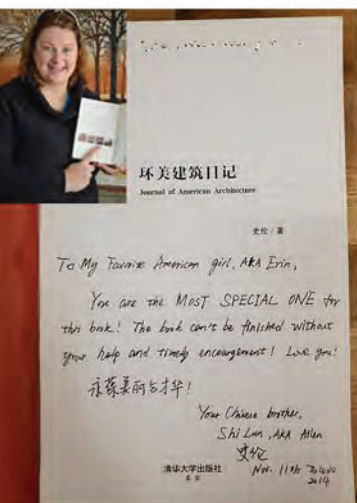 环美建筑日记
Journal of American Architecture
史伦 / 著
To My Favorite American girl, AKA Erin,
You are the MOST SPECIAL ONE for
this book! The book can't be finished without
your help and timely encouragement! Love you!
美丽与才华!
Your Chinese brother,
Shi Lun, AKA Allen
史伦
清华大学出版社
北京
Nov. 11th
2014